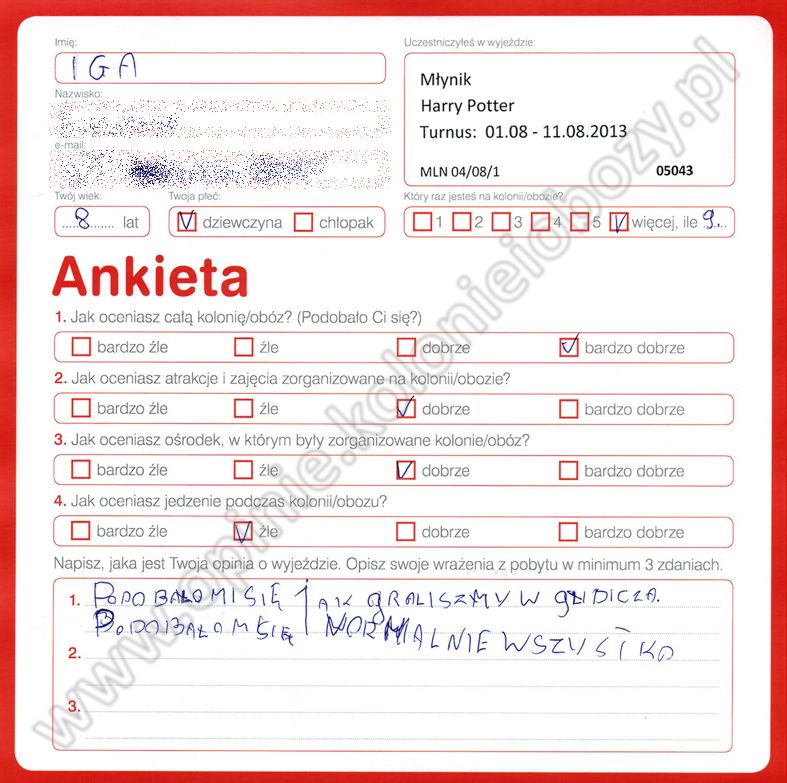 Imię:
IGA
Uczestniczyłeś w wyjeździe:
Młynik
Harry Potter
Turnus: 01.08 - 11.08.2013
MLN 04/08/1 05043
Nazwisko:
e-mail:
Twój wiek:
8 lat
Twoja płeć:
dziewczyna chłopak
Który raz jesteś na kolonii/obozie?
1 2 3 4 5 więcej, ile 9
Ankieta
1. Jak oceniasz całą kolonię/obóz? (Podobało Ci się?)
bardzo źle źle dobrze bardzo dobrze
2. Jak oceniasz atrakcje i zajęcia zorganizowane na kolonii/obozie?
bardzo źle źle dobrze bardzo dobrze
3. Jak oceniasz ośrodek, w którym były zorganizowane kolonie/obóz?
bardzo źle źle dobrze bardzo dobrze
4. Jak oceniasz jedzenie podczas kolonii/obozu?
bardzo źle źle dobrze bardzo dobrze
Napisz, jaka jest Twoja opinia o wyjeździe. Opisz swoje wrażenia z pobytu w minimum 3 zdaniach.
1. PODOBAŁO MI SIĘ JAK GRALISZMY W
PODOBAŁO MI SIĘ NORMALNIE WSZYSTKO
2.
3.
www.opinie.kolonieiobozy.pl